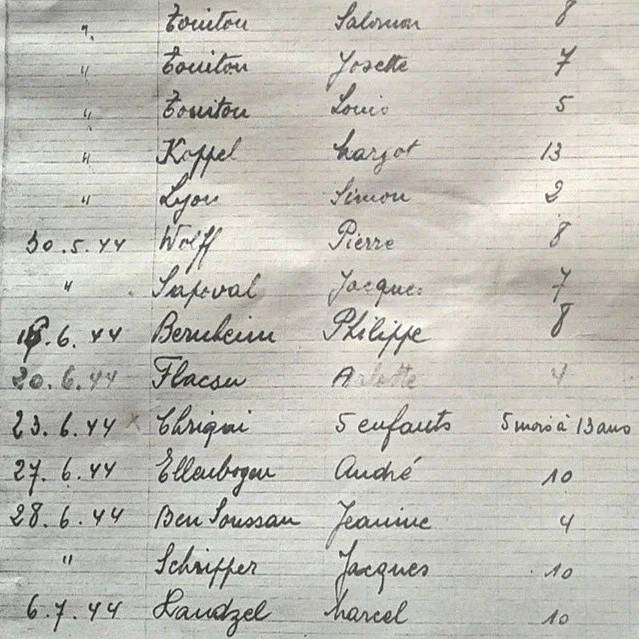 " Touitou Salomon 8
" Touitou Josette 7
" Touitou Louis 5
" Koppel Margot 13
" Lyon Simon 2
30.5.44 Wolff Pierre 8
" Sapoval Jacques 7
.6.44 Bernheim Philippe 8
20.6.44 Flacsu 4
23.6.44 x Chriqui 5 enfants 5 mois à 13 ans
27.6.44 Ellenbogen André 10
28.6.44 Ben Soussan Jeanine 4
" Schripper Jacques 10
6.7.44 Handzel Marcel 10